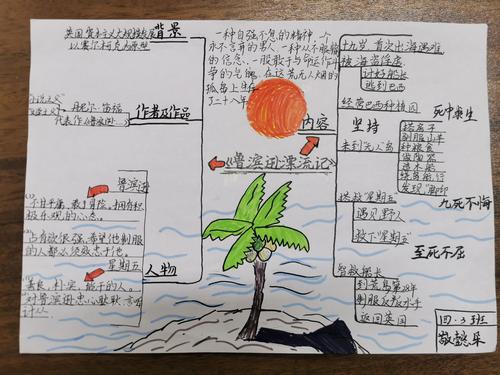 英国资本主义大规模发展
以塞尔柯克为原型
背景
丹尼尔·笛福
代表作《鲁滨逊…
作者及作品
一种自强不息的精神，一个
永不言弃的男人，一种从不服输
的信念，一股敢于与命运作斗
争的勇气，在这荒无人烟的
孤岛上生存
了二十八年
内容
《鲁滨逊漂流记》
鲁滨逊
不甘平庸，敢于冒险，拥有积
极乐观的心态。
占有欲很强，希望他制服
的人都必须效忠于他。
星期五
善良，朴实，能干的人。
对鲁滨逊忠心耿耿，言听
计从。
人物
十九岁 首次出海遇难
被海盗俘虏
讨好船长
逃到巴西
经营巴西种植园
死中求生
坚持
来到无人岛
搭房子
驯服山羊
种粮食
做陶器
造木船
发现脚印
九死不悔
拯救“星期五”
遇见野人
救下“星期五”
至死不屈
智救船长
到荒岛第28年
制服反叛水手
返回英国
四·3班